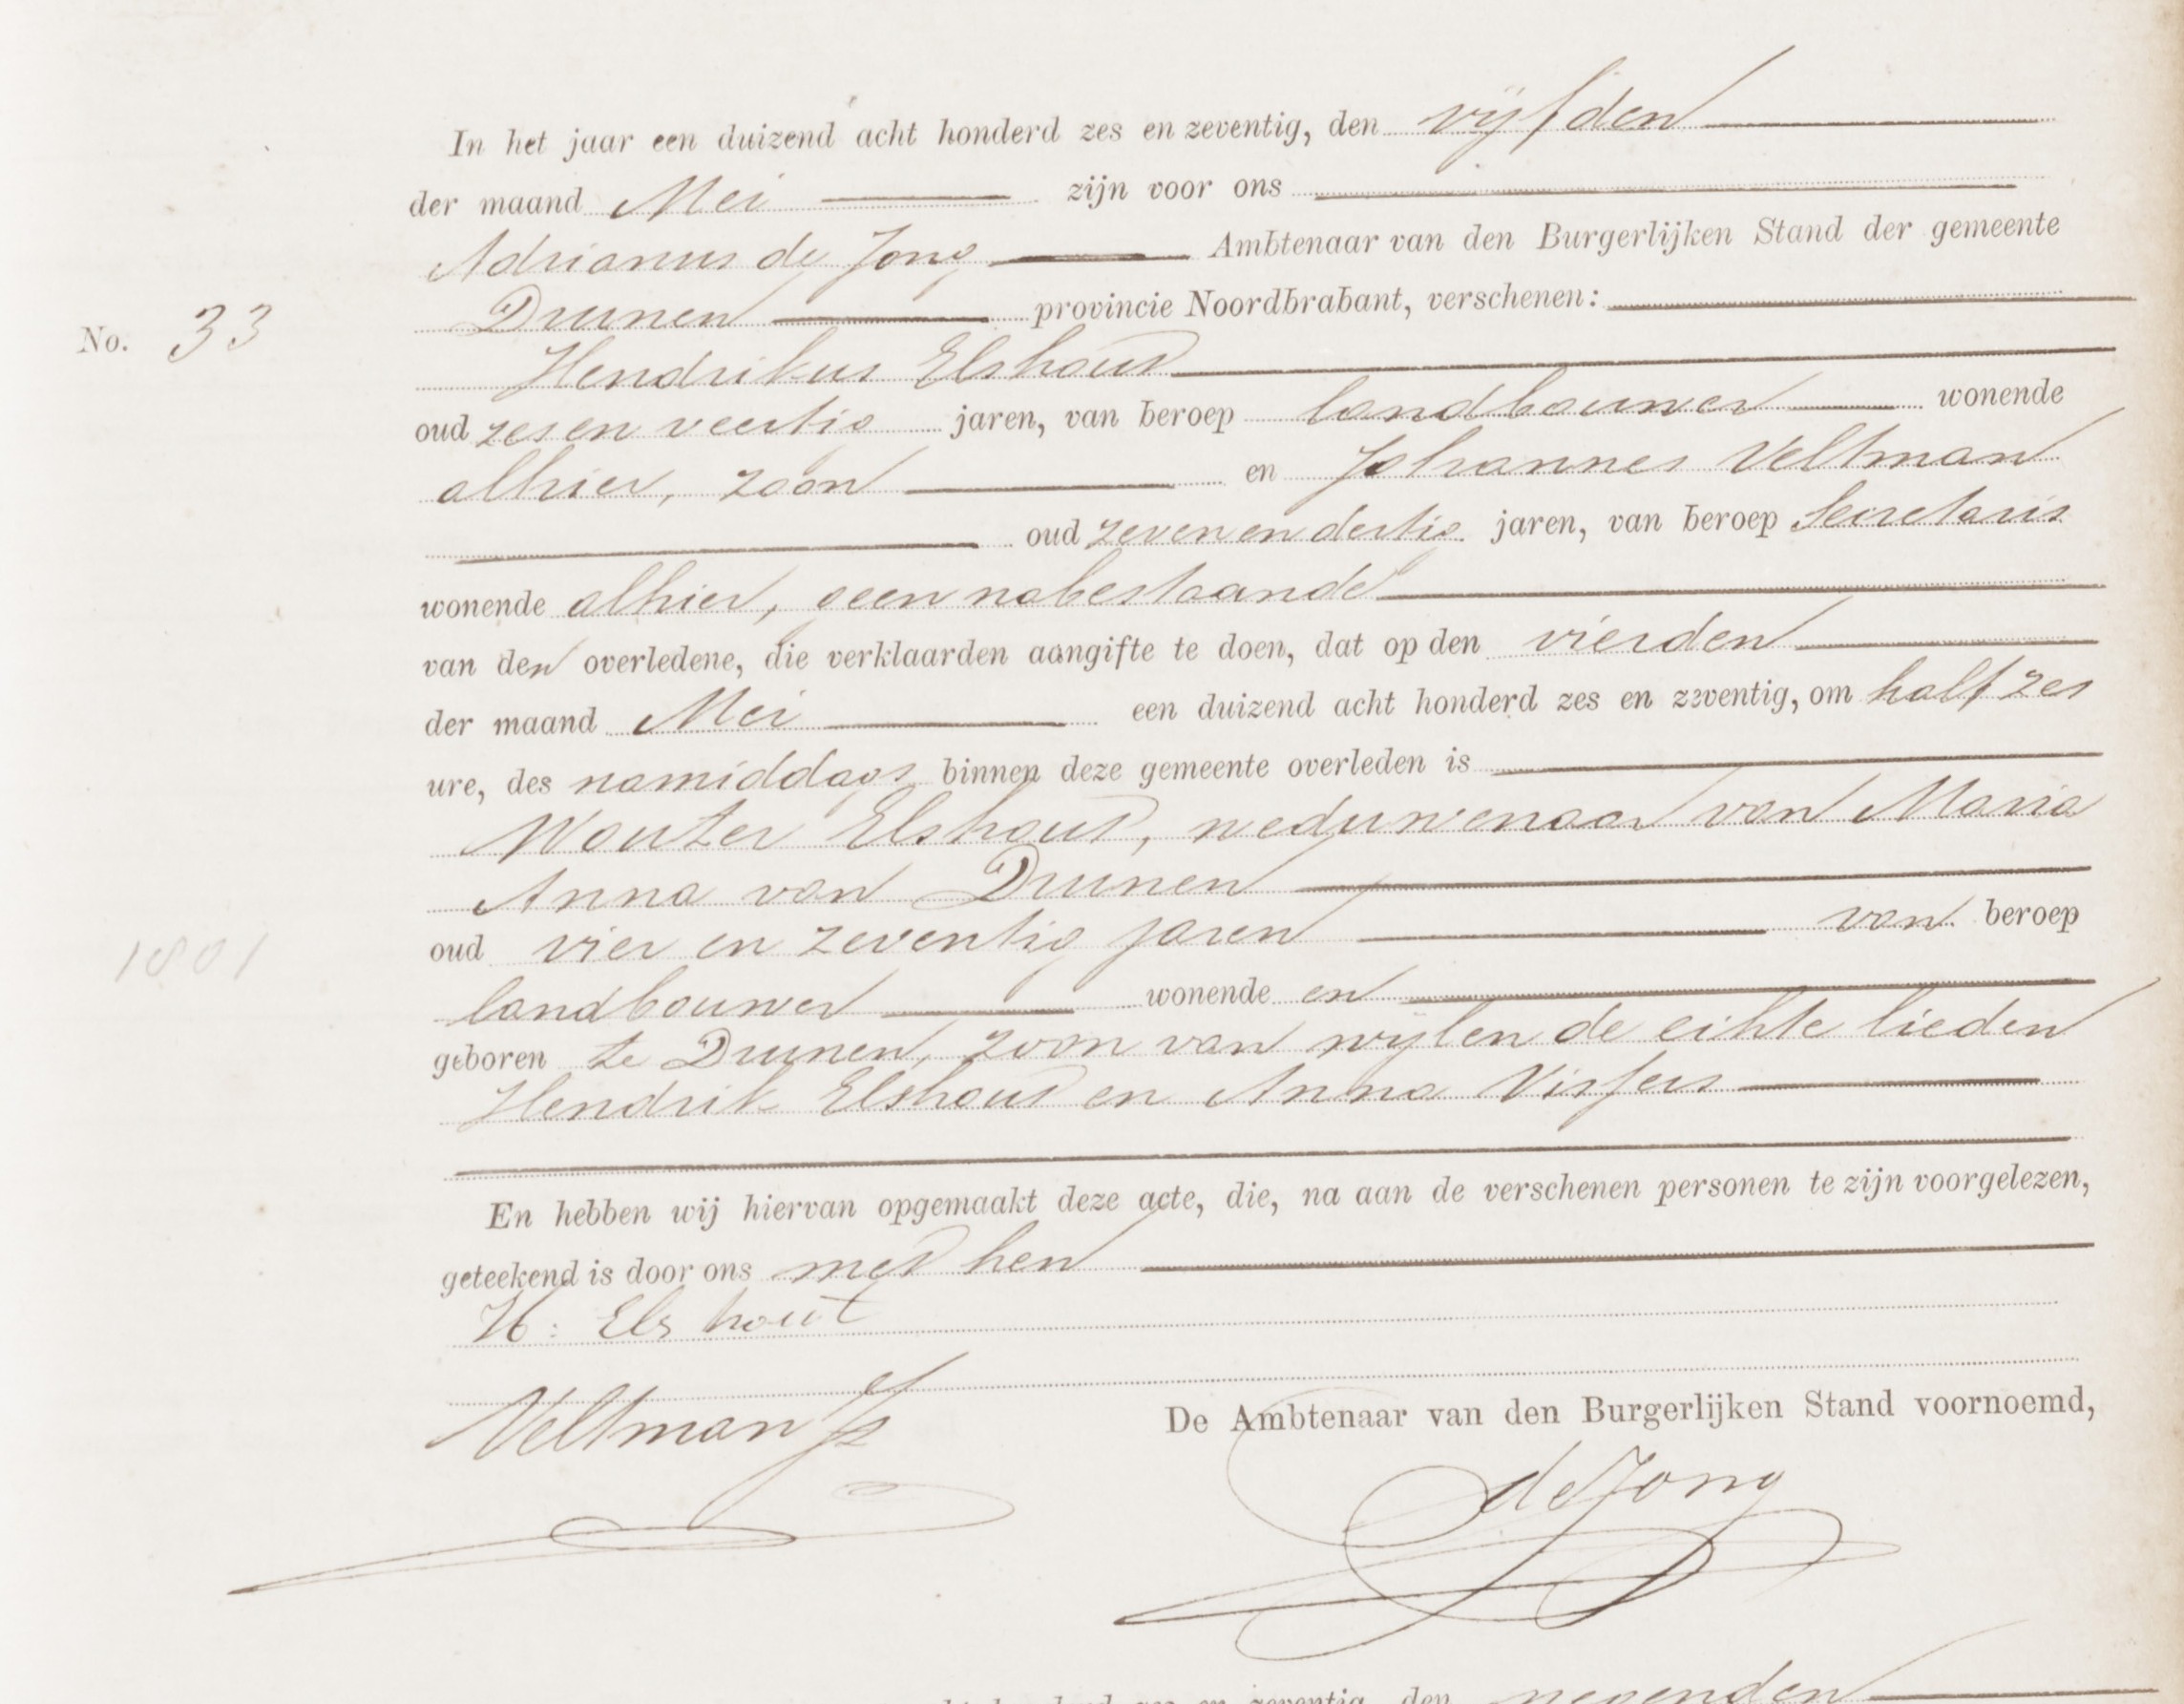 In het jaar een duizend acht honderd zes en zeventig, den vijfden
der maand Mei zijn voor ons
Adrianus de Jong Ambtenaar van den Burgerlijken Stand der gemeente
Drunen provincie Noordbrabant, verschenen:
No. 33
Hendrikus Elshout
oud zes en veertig jaren, van beroep landbouwer wonende
alhier, zoon en Johannes Veltman
oud zeven en dertig jaren, van beroep Secretaris
wonende alhier, geen nabestaande
van den overledene, die verklaarden aangifte te doen, dat op den vierden
der maand Mei een duizend acht honderd zes en zeventig, om half zes
ure, des namiddags binnen deze gemeente overleden is
Wouter Elshout, weduwenaar van Maria
Anna van Drunen
oud vier en zeventig jaren van beroep
1801
landbouwer wonende en
geboren te Drunen, zoon van wijlen de echte lieden
Hendrik Elshout en Anna Visfers
En hebben wij hiervan opgemaakt deze acte, die, na aan de verschenen personen te zijn voorgelezen,
geteekend is door ons met hen
H: Elshout
Veltman Js
De Ambtenaar van den Burgerlijken Stand voornoemd,
de Jong
zes en zeventig, den negenden